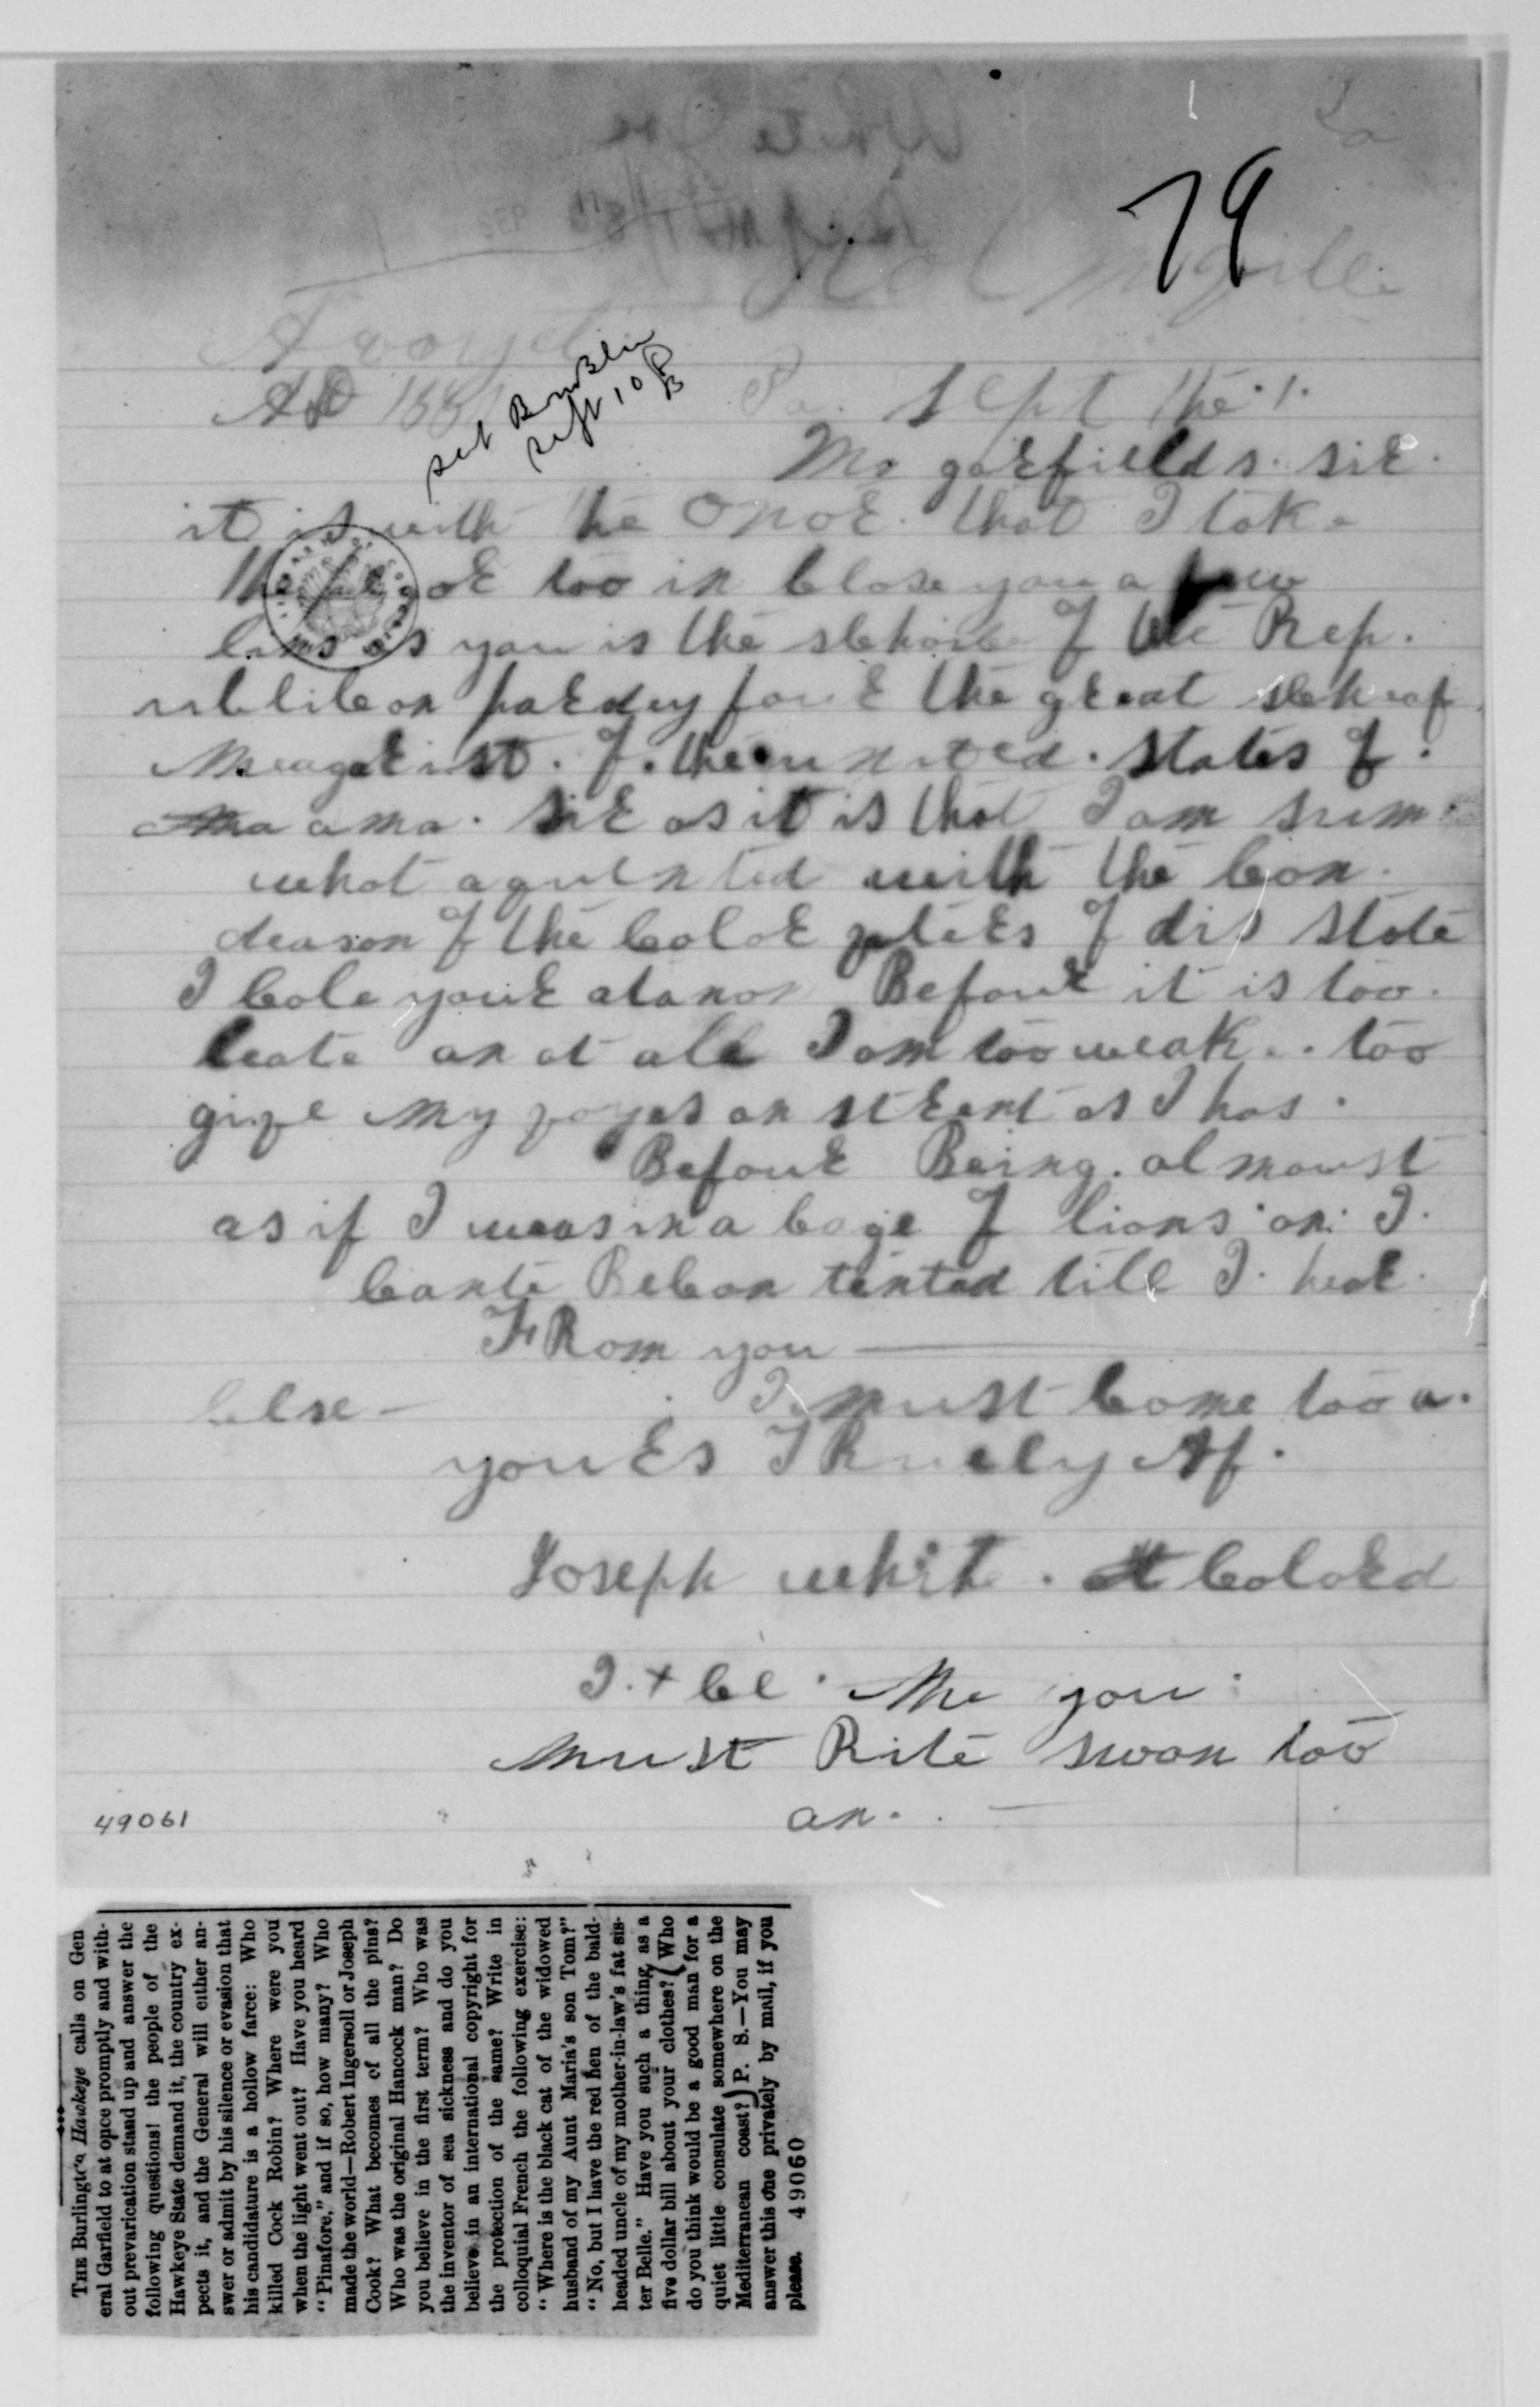 79
AD 188
Pa. Sept the 1.
set Bundlin
Sept 10
Mr garfields. sir.
it is with the onor. that I take
the or too in close you a few
lines as you is the of the Rep.
ublican pardey four the great
. of. the united. states of.
ama. sir as it is that I am sum
what aquinted with the con.
deason of the color of dis state
I cole your atanon Befour it is too.
leate an at all I am too weak.. too
give my an as I has.
Befour Being. almoust
as if I was in a cage of lions an. I.
cante Be con tented till I. hear.
FRom you
else — I must come too a.
yours TRuely Af.
Joseph white. Colored
Me you
must Rite swoon too
an..
49061
THE Burlington Hawkeye calls on Gen
eral Garfield to at once promptly and with-
out prevarication stand up and answer the
following questions! the people of the
Hawkeye State demand it, the country ex-
pects it, and the General will either an-
swer or admit by his silence or evasion that
his candidature is a hollow farce: Who
killed Cock Robin? Where were you
when the light went out? Have you heard
"Pinafore," and if so, how many? Who
made the world—Robert Ingersoll or Joseph
Cook? What becomes of all the pins?
Who was the original Hancock man? Do
you believe in the first term? Who was
the inventor of sea sickness and do you
believe in an international copyright for
the protection of the same? Write in
colloquial French the following exercise:
"Where is the black cat of the widowed
husband of my Aunt Maria's son Tom?"
"No, but I have the red hen of the bald-
headed uncle of my mother-in-law's fat sis-
ter Belle." Have you such a thing as a
five dollar bill about your clothes? (Who
do you think would be a good man for a
quiet little consulate somewhere on the
Mediterranean coast?) P. S.—You may
answer this one privately by mail, if you
please. 49060